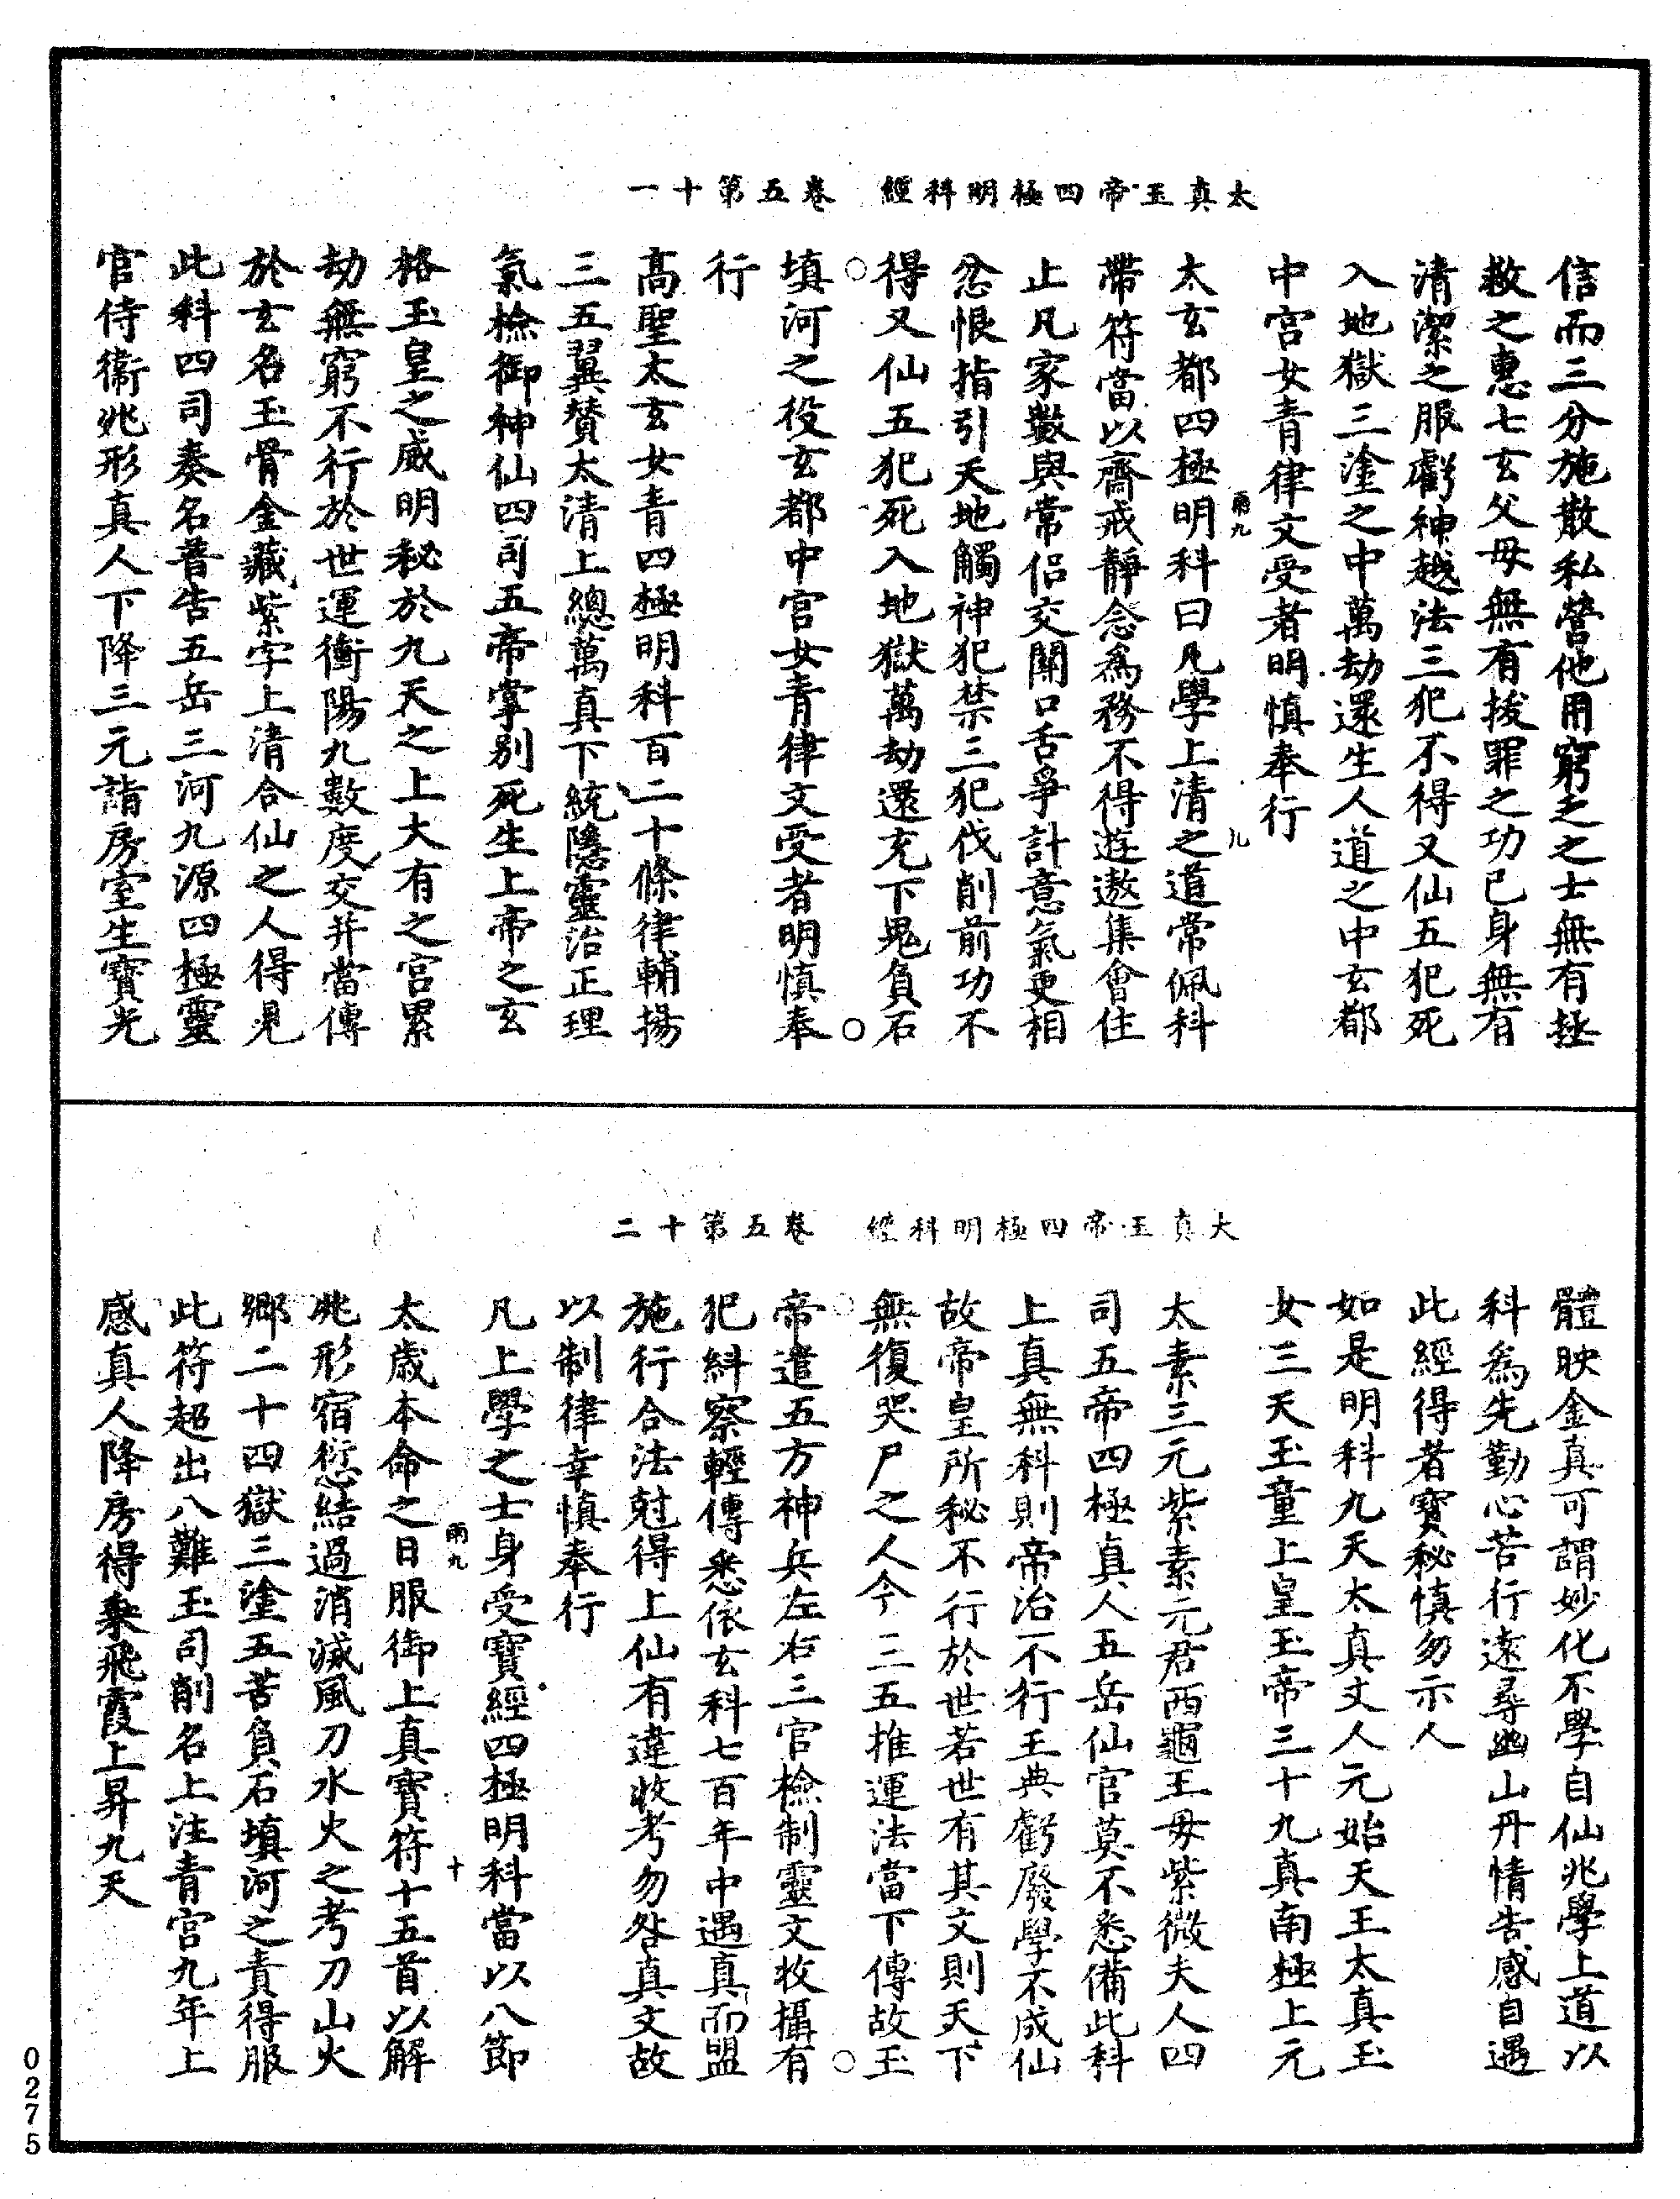 太真玉帝四極明科經　卷五第十一
信而三分施散私營他用窮乏之士無有拯
救之惠七玄父母無有拔罪之功己身無有
清潔之服虧神越法三犯不得又仙五犯死
入地獄三塗之中萬劫還生人道之中玄都
中宮女青律文受者明慎奉行
雨九　九
太玄都四極明科曰凡學上清之道常佩科
帶符當以齋戒靜念為務不得遊遨集會住
止凡家數與常侶交關口舌爭計意氣更相
忿恨指引天地觸神犯禁三犯伐削前功不
得又仙五犯死入地獄萬劫還充下鬼負石
填河之役玄都中宮女青律文受者明慎奉
行
高聖太玄女青四極明科百二十條律輔揚
三五翼贊太清上總萬真下統隱靈治正理
氣檢御神仙四司五帝掌別死生上帝之玄
格玉皇之威明秘於九天之上大有之宮累
劫無窮不行於世運衝陽九數度交并當傳
於玄名玉骨金藏紫字上清合仙之人得見
此科四司奏名普告五岳三河九源四極靈
官侍衛兆形真人下降三元詣房室生寶光
太真玉帝四極明科經　卷五第十二
體映金真可謂妙化不學自仙兆學上道以
科為先勤心苦行遠尋幽山丹情告感自遇
此經得者寶秘慎勿示人
如是明科九天太真丈人元始天王太真玉
女三天玉童上皇玉帝三十九真南極上元
太素三元紫素元君西龜王母紫微夫人四
司五帝四極真人五岳仙官莫不悉備此科
上真無科則帝治不行王典虧廢學不成仙
故帝皇所秘不行於世若世有其文則天下
無復哭尸之人今三五推運法當下傳故玉
帝遣五方神兵左右三官檢制靈文收攝有
犯糾察輕傳悉依玄科七百年中遇真而盟
施行合法尅得上仙有違收考勿咎真文故
以制律幸慎奉行
凡上學之士身受寶經四極明科當以八節
雨九　十
太歲本命之日服御上真寶符十五首以解
兆形宿愆結過消滅風刀水火之考刀山火
鄉二十四獄三塗五苦負石填河之責得服
此符超出八難玉司削名上注青宮九年上
感真人降房得乘飛霞上昇九天
0275